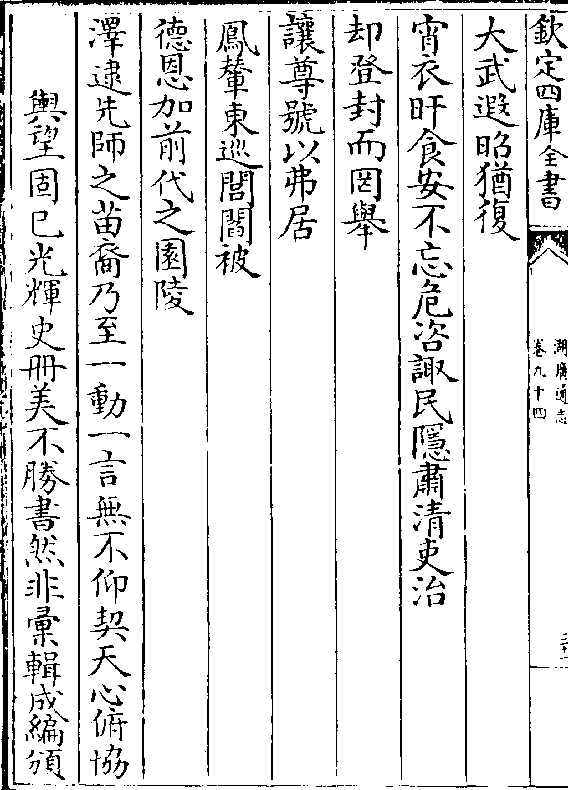 欽定四庫全書
湖廣通志
卷九十四
大武遐昭猶復
宵衣旰食安不忘危咨諏民隱肅清吏治
却登封而罔舉
讓尊號以弗居
鳳輦東巡閭閻被
德恩加前代之園陵
澤逮先師之苗裔乃至一動一言無不仰契天心俯協
輿望固已光輝史冊美不勝書然非彙輯成編頒